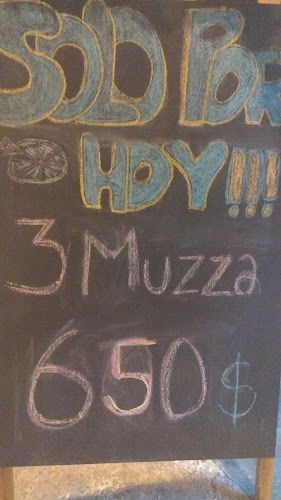 SOLO POR
HOY!!!
3 Muzza
650 $